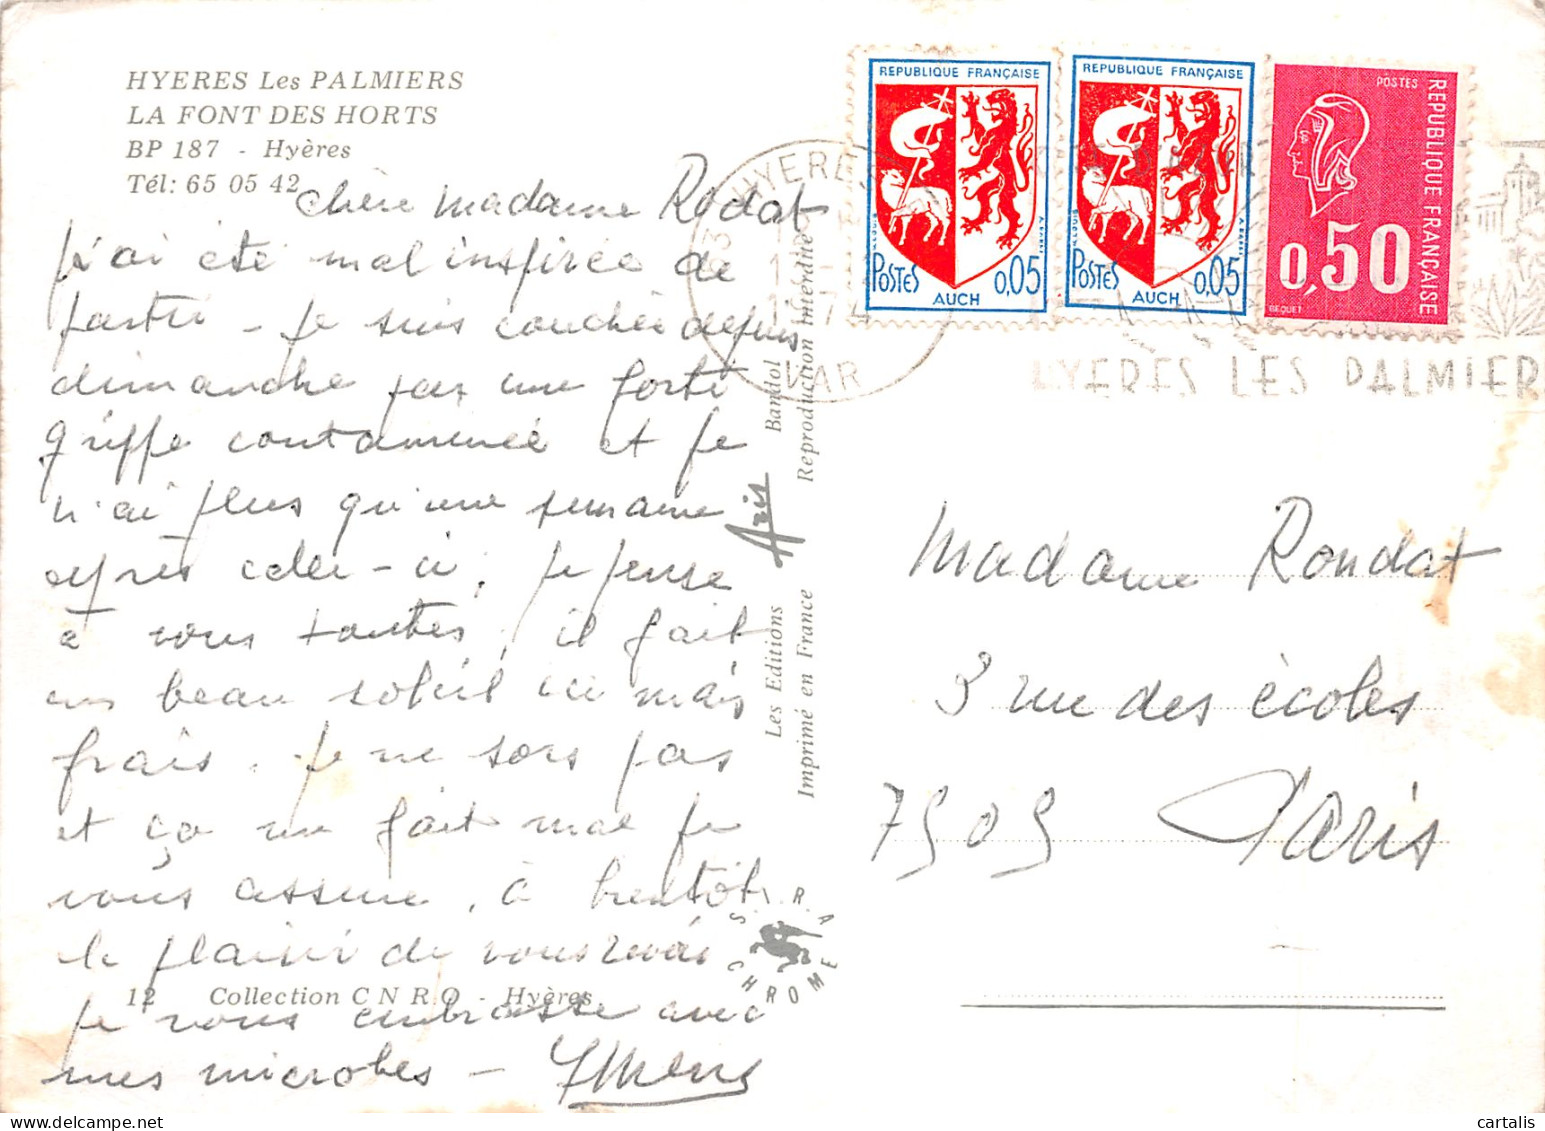 HYERES Les PALMIERS
LA FONT DES HORTS
BP 187 - Hyères
Tél: 65 05 42
chère Madame Rodat
j'ai été mal inspirée de
partir - je suis couchée depuis
dimanche par une forte
grippe contaminée et je
n'ai plus qu'une semaine
après celle-ci, je pense
à vous toutes, il fait
un beau soleil ici mais
frais. je ne sors pas
et ça me fait mal je
vous assure, à bientôt
le plaisir de vous revoir
je vous embrasse avec
mes microbes -
12 Collection C N R O - Hyères
Les Editions Aris Bandol
Imprimé en France Reproduction Interdite
S.I.R.A
CHROME
REPUBLIQUE FRANÇAISE
POSTES 0,05
AUCH
REPUBLIQUE FRANÇAISE
POSTES 0,05
AUCH
POSTES
REPUBLIQUE FRANÇAISE
0,50
BEQUET
83 HYERES
VAR
HYERES LES PALMIER
Madame Rondat
3 rue des écoles
7505 Paris
cartalis